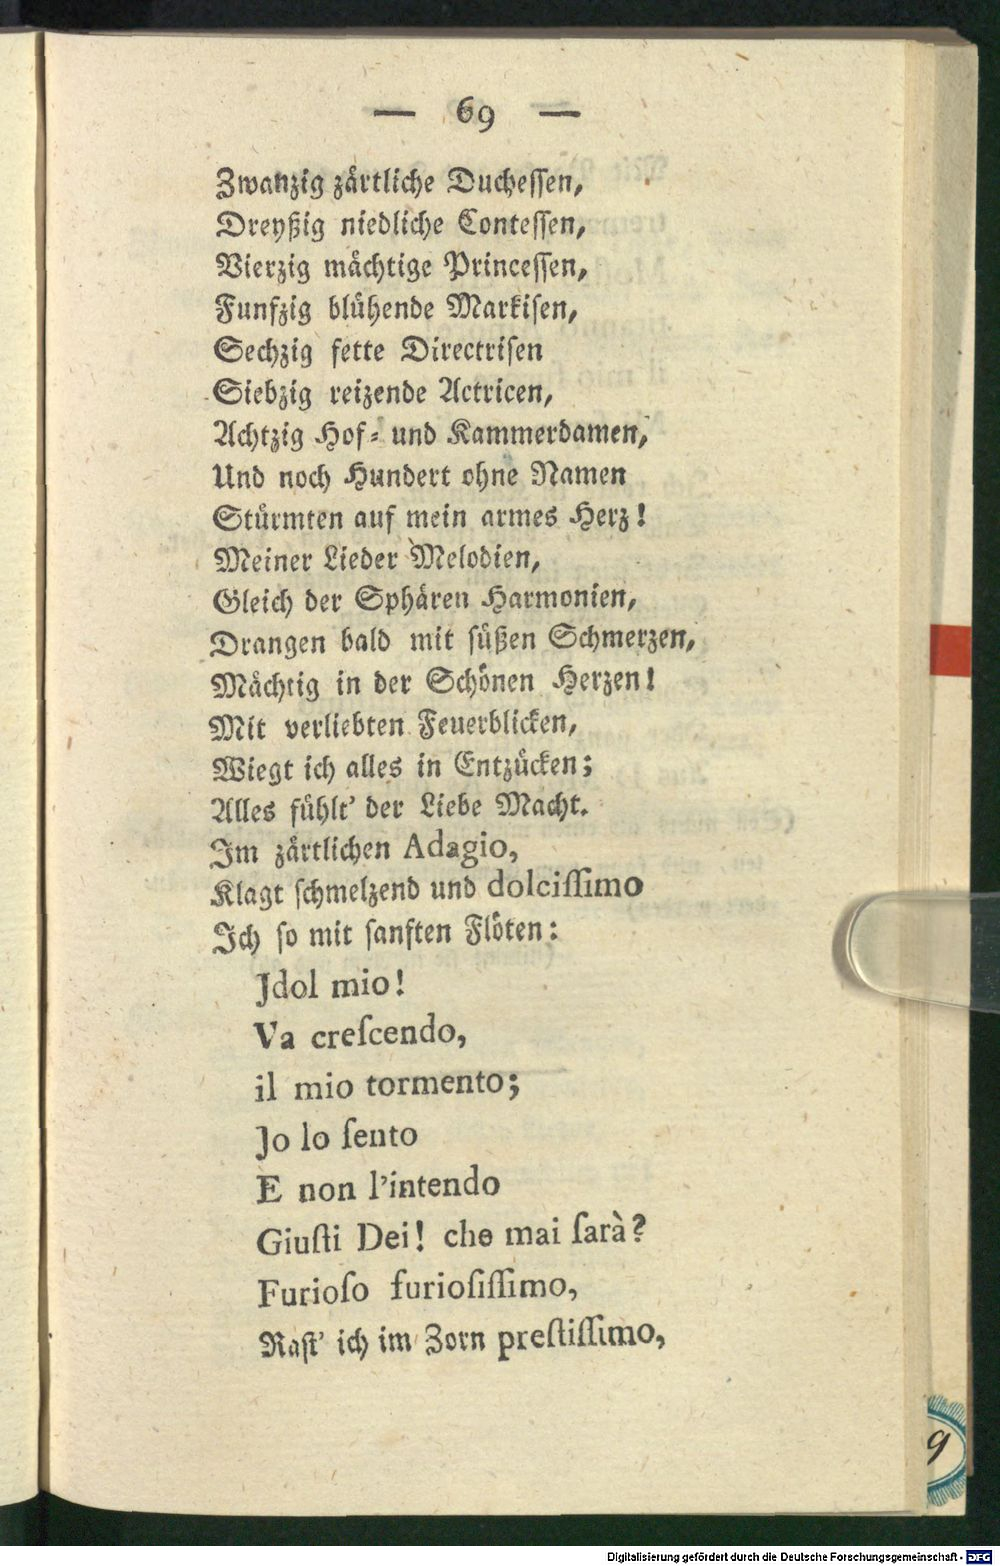 — 69 —
Zwanzig zärtliche Duchessen,
Dreyßig niedliche Contessen,
Vierzig mächtige Princessen,
Funfzig blühende Markisen,
Sechzig fette Directrisen
Siebzig reizende Actricen,
Achtzig Hof- und Kammerdamen,
Und noch Hundert ohne Namen
Stürmten auf mein armes Herz!
Meiner Lieder Melodien,
Gleich der Sphären Harmonien,
Drangen bald mit süßen Schmerzen,
Mächtig in der Schönen Herzen!
Mit verliebten Feuerblicken,
Wiegt ich alles in Entzücken;
Alles fühlt' der Liebe Macht.
Im zärtlichen Adagio,
Klagt schmelzend und dolciſſimo
Ich so mit sanften Flöten:
Jdol mio!
Va creſcendo,
il mio tormento;
Jo lo ſento
E non l'intendo
Giuſti Dei! che mai ſarà?
Furioſo furioſiſſimo,
Rast' ich im Zorn preſtiſſimo,
9
Digitalisierung gefördert durch die Deutsche Forschungsgemeinschaft - DFG